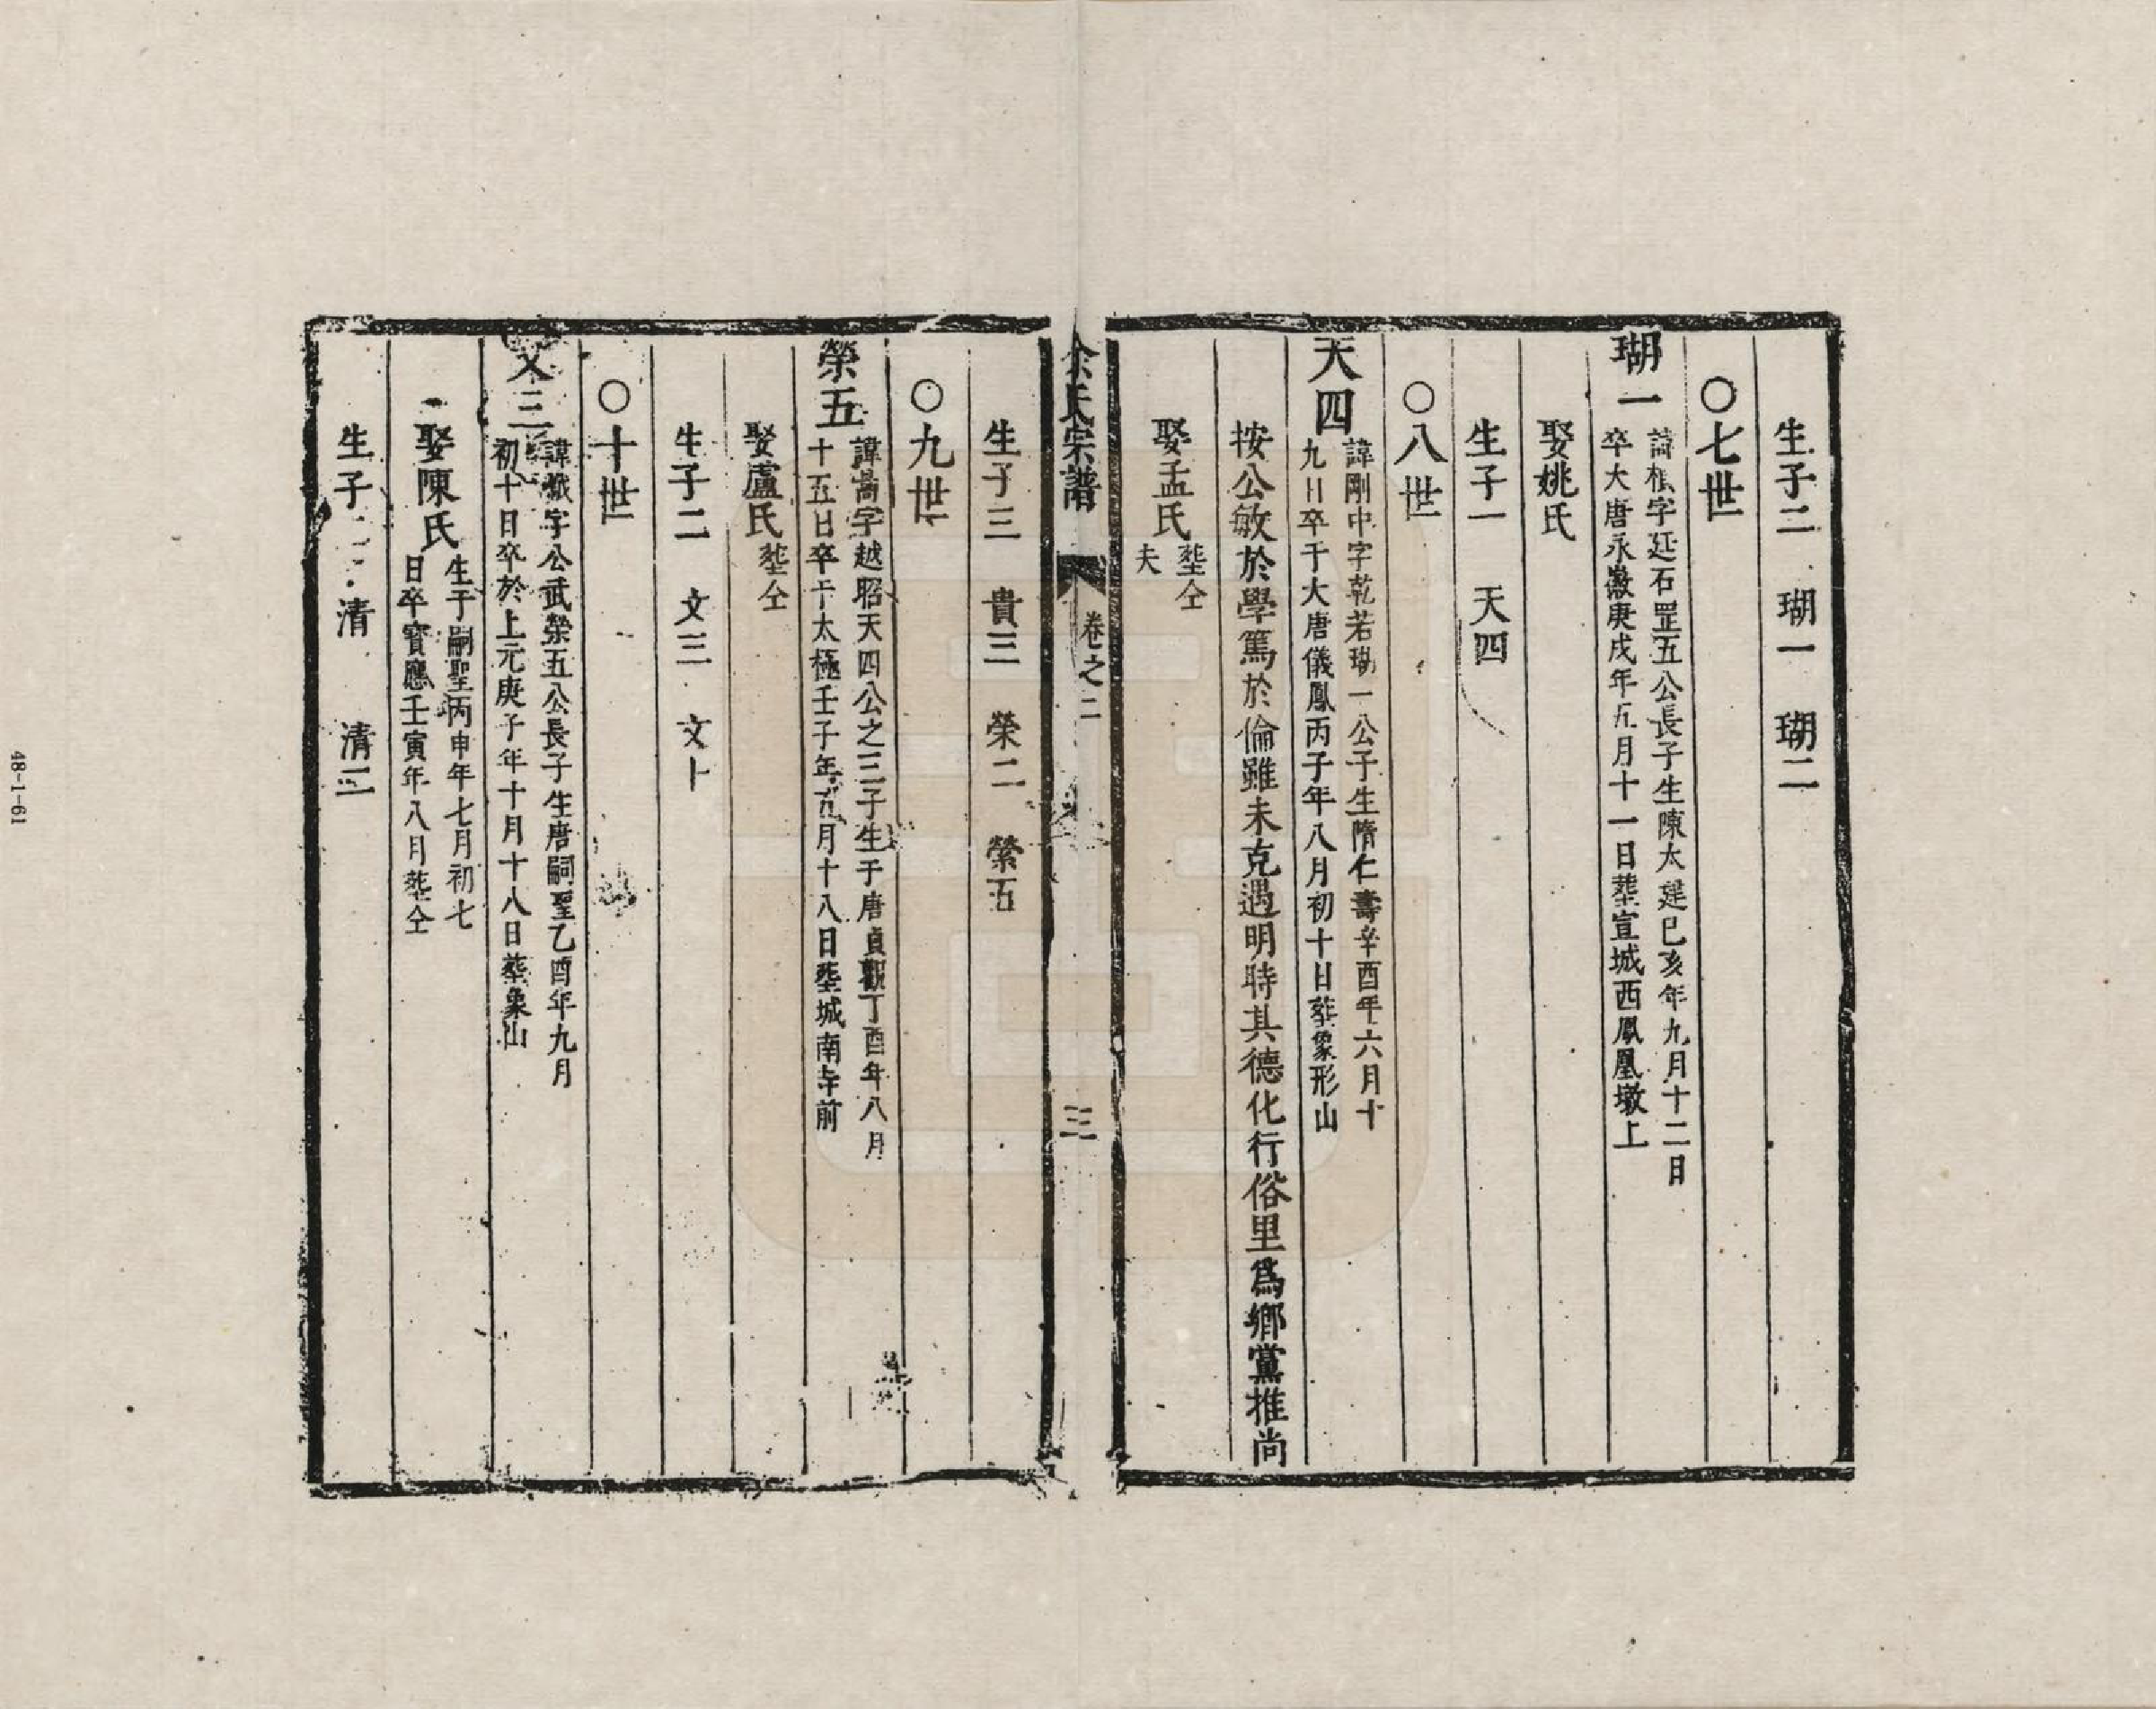 生子二 瑚一 瑚二
○七世
瑚一
諱樵字廷石罡五公長子生陳太建己亥年九月十二日
卒大唐永徽庚戌年五月十一日塟宣城西鳳凰墩上
娶姚氏
生子一 天四
○八世
天四
諱剛中字乾若瑚一公子生隋仁壽辛酉年六月十
九日卒于大唐儀鳳丙子年八月初十日塟象形山
按公敏於學篤於倫雖未克遇明時其德化行俗里爲鄉黨推尚
娶孟氏
塟仝
夫
余氏宗譜 卷之二 三
生子三 貴三 榮二 榮五
○九世
榮五
諱嵩字越昭天四公之三子生于唐貞觀丁酉年八月
十五日卒于太極壬子年五月十八日塟城南寺前
娶盧氏
塟仝
生子二 文三 文十
○十世
文三
諱 字公武榮五公長子生唐嗣聖乙酉年九月
初十日卒於上元庚子年十月十八日塟象山
娶陳氏
生于嗣聖丙申年七月初七
日卒寳應壬寅年八月塟仝
生子二 清 清三
48-1-61